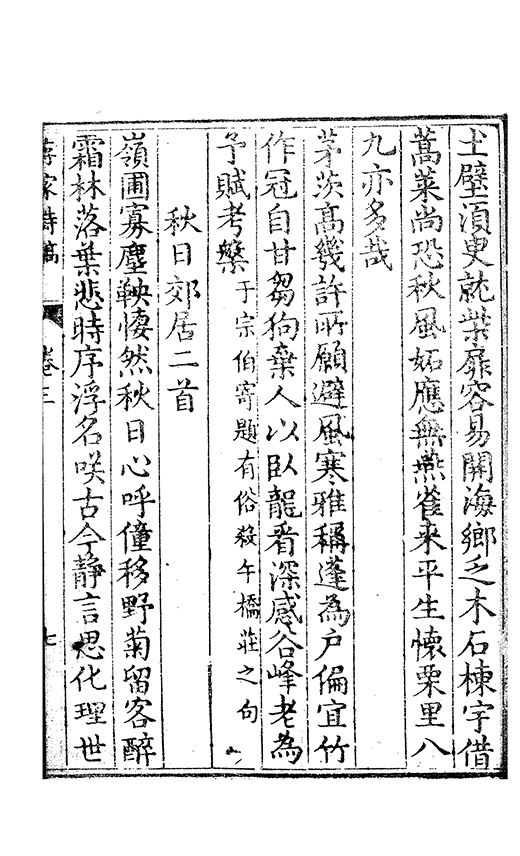 土壁湏更就柴扉容易開海鄉乏木石棟宇借
蒿萊尚恐秋風妬應無燕雀来平生懷栗里八
九亦多哉
茅茨高幾許所願避風寒雅稱蓬為户偏宜竹
作冠自甘芻狗棄人以臥龍看深感谷峰老為
予賦考槃于宗伯寄題有俗殺午橋莊之句
秋日郊居二首
嶺圃寡塵鞅悽然秋日心呼僮移野菊留客醉
霜林落葉悲時序浮名咲古今静言思化理世
蒋家詩稿 卷三 七